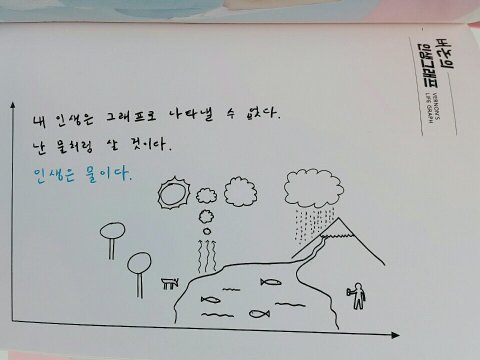 버논의
인생그래프
VERNON'S
LIFE GRAPH
내 인생은 그래프로 나타낼 수 없다.
난 물처럼 살 것이다.
인생은 물이다.